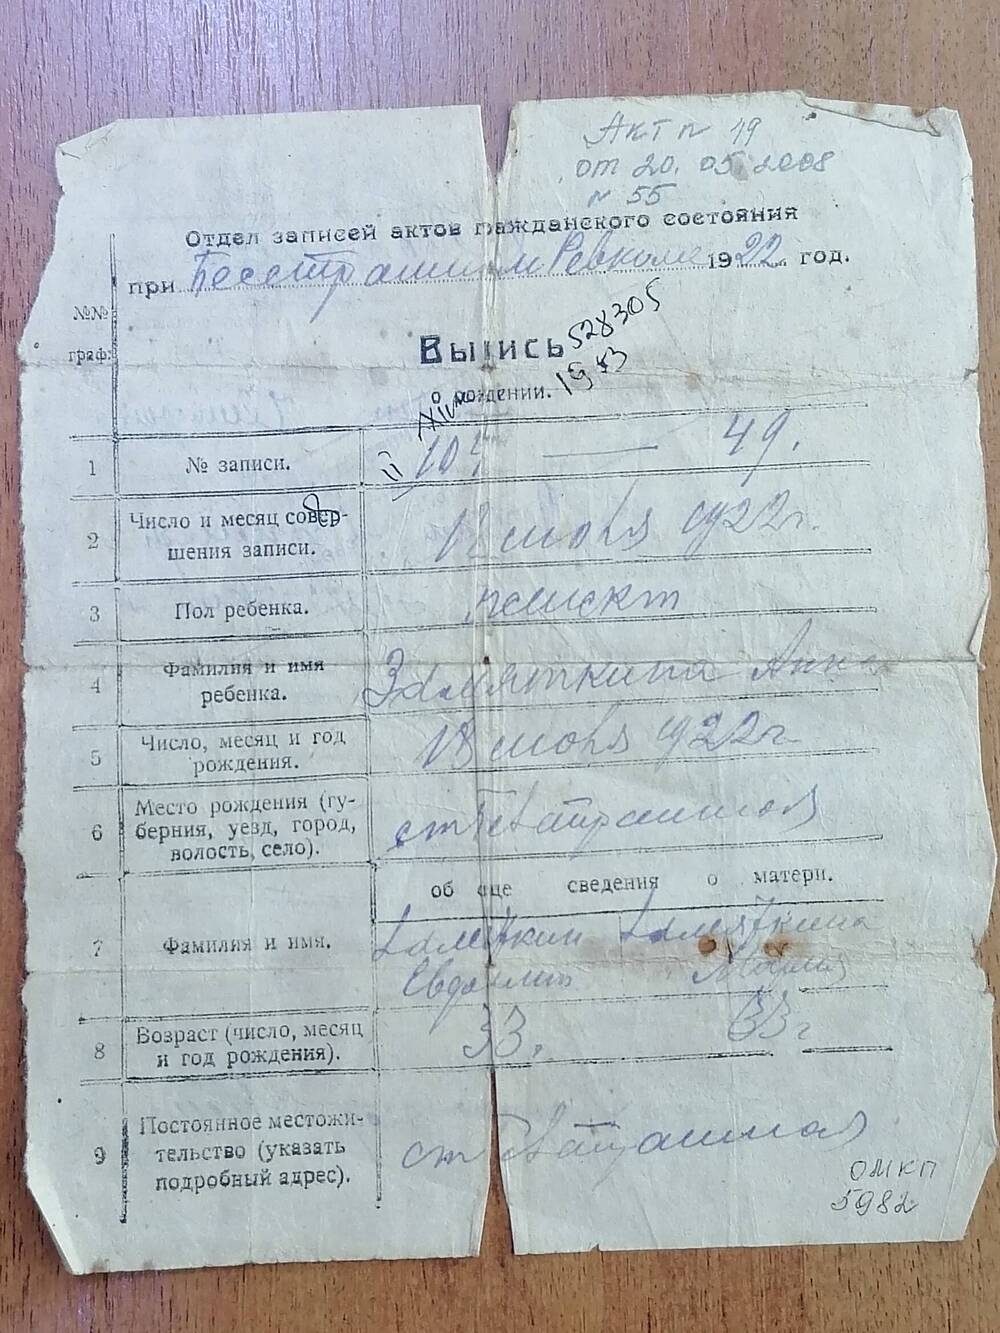 Акт п 19
от 20.05.2008
п 55
Отдел записей актов гражданского состояния
при Бесстрашном Ревкоме 1922 год.
№№
граф.
Выпись 528305
о рождении. 1943
1 № записи. 49.
2 Число и месяц совер-
шения записи. июня 1922 г.
3 Пол ребенка. женск
4 Фамилия и имя
ребенка. Замяткина Анна
5 Число, месяц и год
рождения. июня 1922 г.
6 Место рождения (гу-
берния, уезд, город,
волость, село). ст Бесстрашная
об сведения о матери.
7 Фамилия и имя. Замяткин Замяткина
Мария
8 Возраст (число, месяц
и год рождения). 33. 33 г
9 Постоянное местожи-
тельство (указать
подробный адрес). ст Бесстрашная
ОМКП
5982